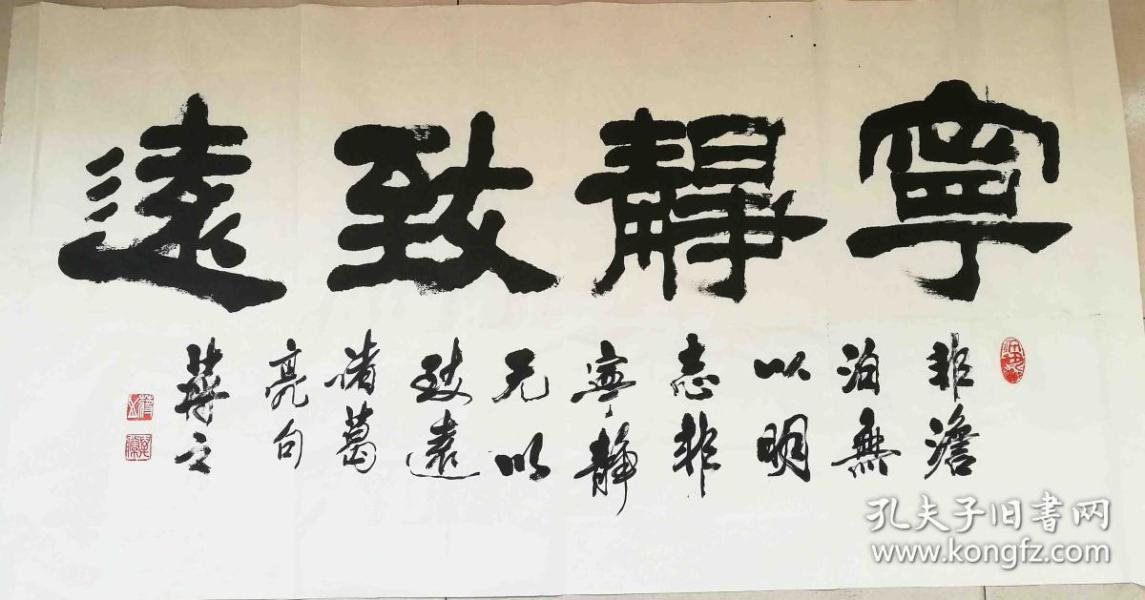 寧靜致遠
非澹
泊無
以明
志非
寧静
无以
致遠
诸葛
亮句
蒋之
孔夫子旧书网
www.kongfz.com